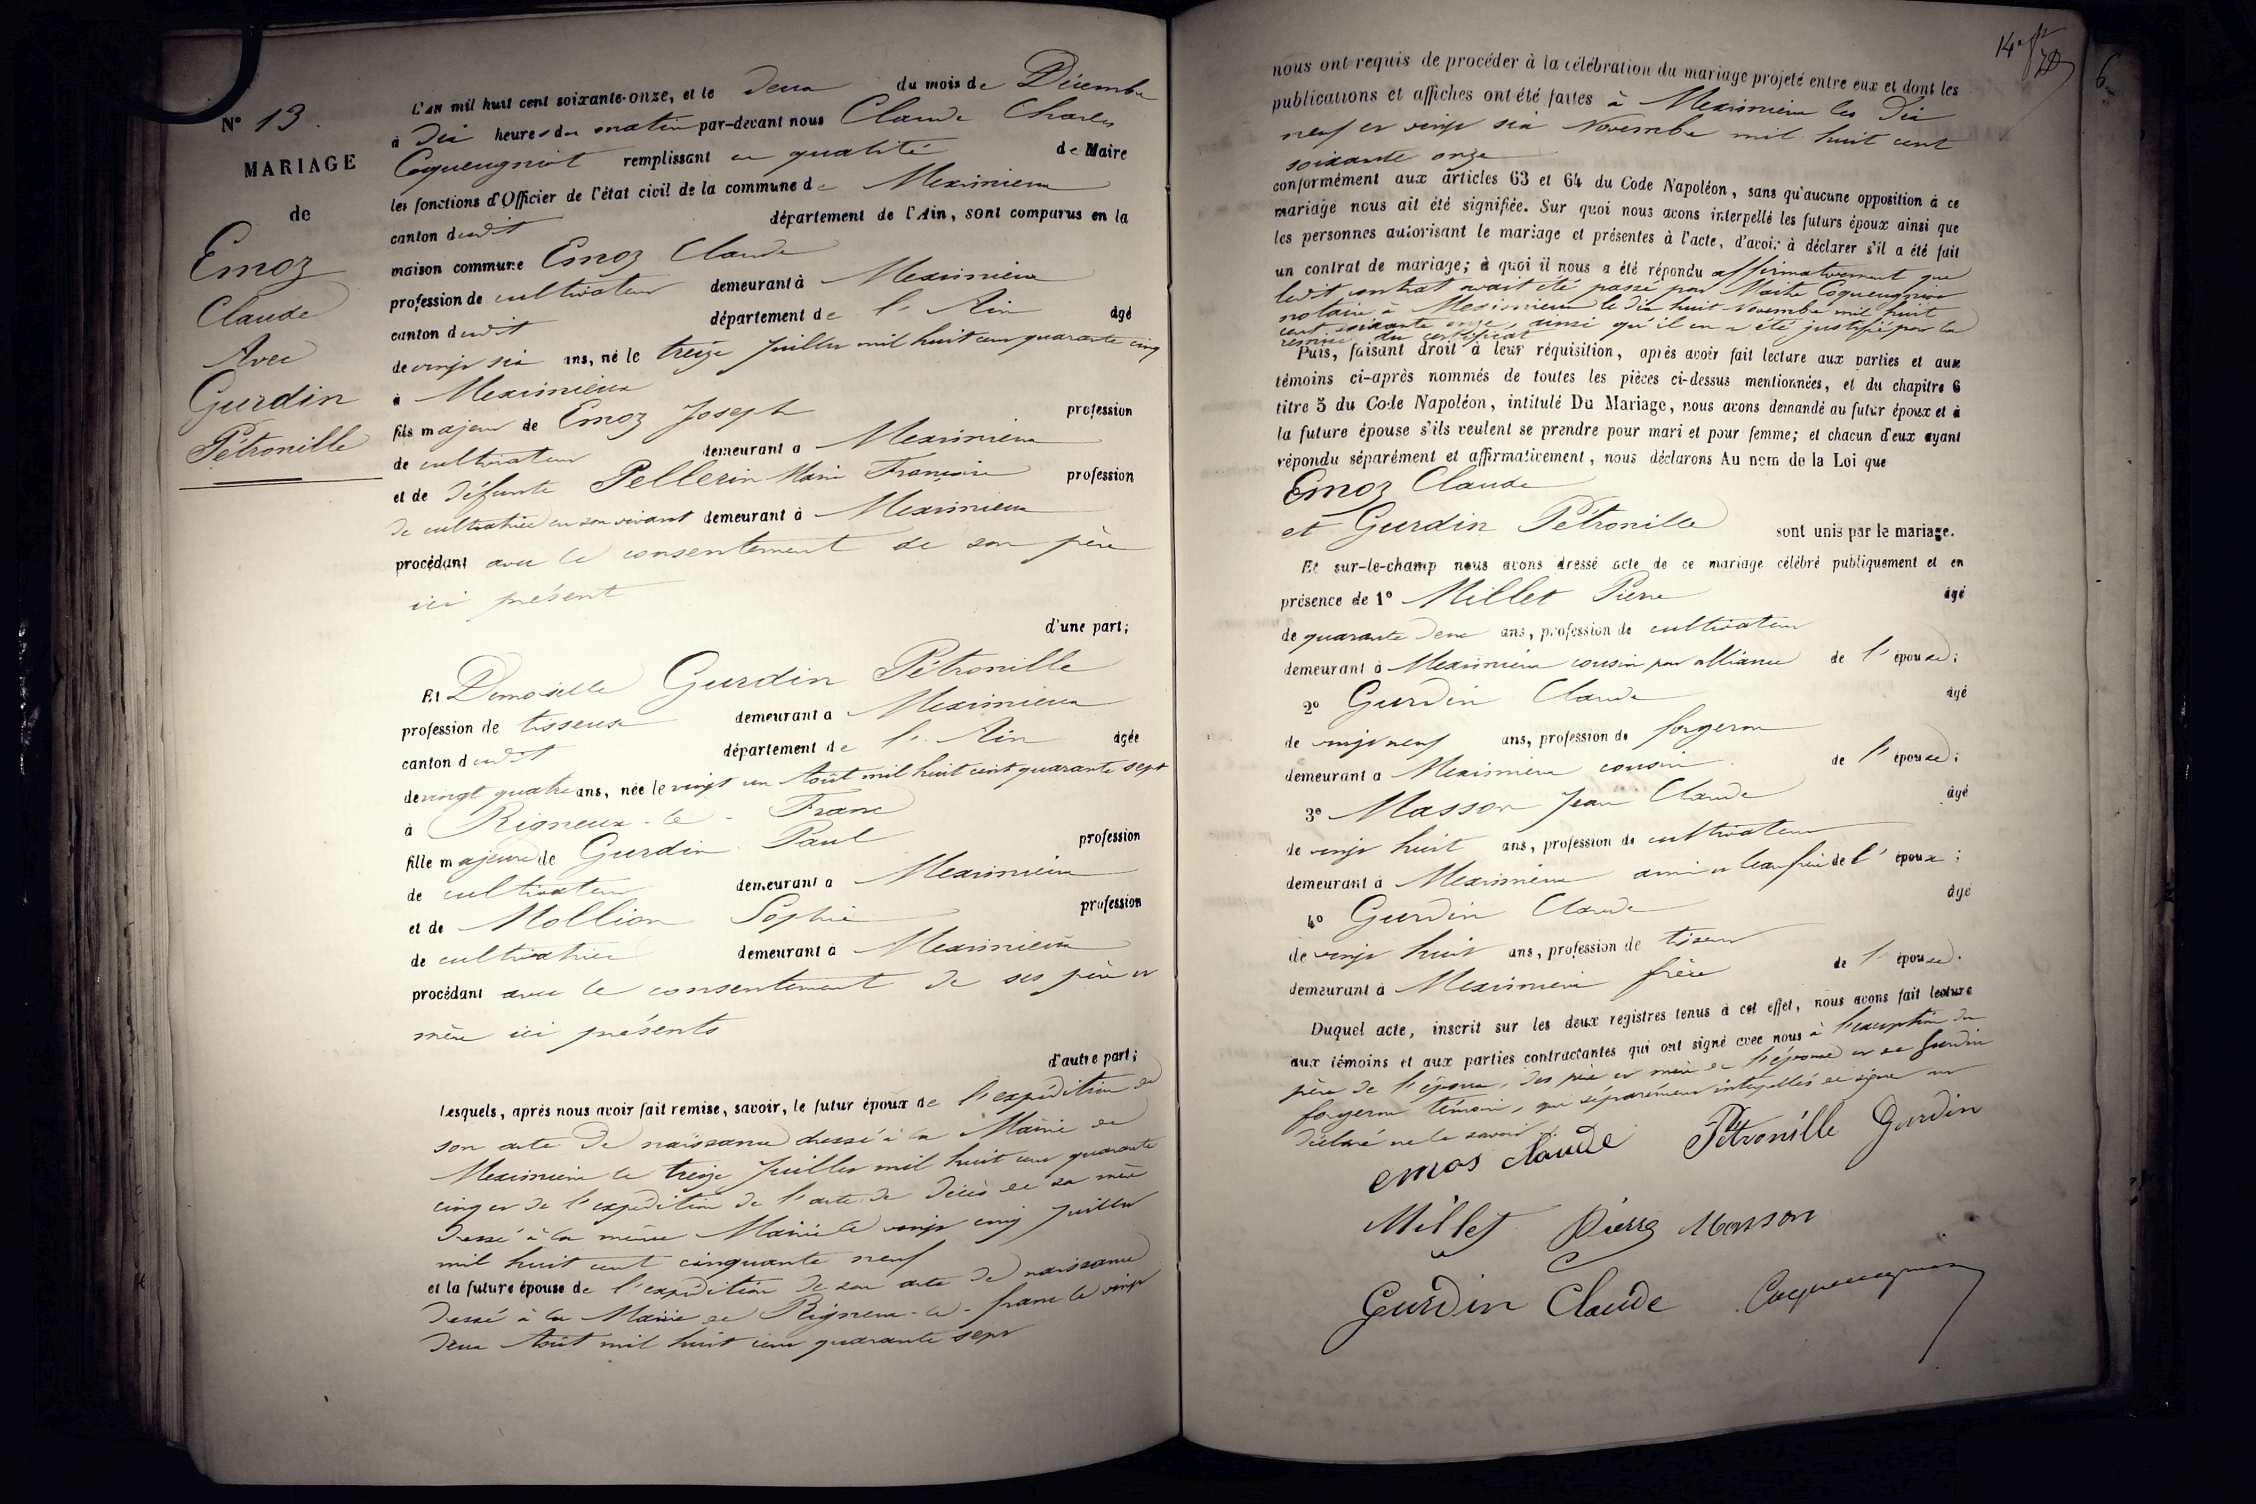 N° 13
MARIAGE
de
Emoz
Claude
Avec
Gurdin
Pétronille
L'an mil huit cent soixante-onze, et le deux du mois de Décembre
à dix heures du matin par-devant nous Claude Charles
Coqueugniot remplissant en qualité de Maire
les fonctions d'Officier de l'état civil de la commune de Meximieux
canton dudit département de l'Ain, sont comparus en la
maison commune Emoz Claude
profession de cultivateur demeurant à Meximieux
canton dudit département de l'Ain âgé
de vingt six ans, né le treize Juillet mil huit cent quarante cinq
à Meximieux
fils majeur de Emoz Joseph profession
de cultivateur demeurant à Meximieux
et de défunte Pellerin Marie Françoise profession
de cultivatrice en son vivant demeurant à Meximieux
procédant avec le consentement de son père
ici présent
d'une part;
Et Demoiselle Gurdin Pétronille
profession de tisseuse demeurant à Meximieux
canton dudit département de l'Ain âgée
de vingt quatre ans, née le vingt un Août mil huit cent quarante sept
à Rigneux-le-Franc
fille majeure de Gurdin Paul profession
de cultivateur demeurant à Meximieux
et de Mollion Sophie profession
de cultivatrice demeurant à Meximieux
procédant avec le consentement de ses père et
mère ici présents
d'autre part;
Lesquels, après nous avoir fait remise, savoir, le futur époux de l'expédition de
son acte de naissance dressé à la Mairie de
Meximieux le treize Juillet mil huit cent quarante
cinq et de l'expédition de l'acte de décès de sa mère
dressé à la même Mairie le vingt cinq Juillet
mil huit cent cinquante neuf
et la future épouse de l'expédition de son acte de naissance
dressé à la Mairie de Rigneux-le-franc le vingt
deux Août mil huit cent quarante sept
nous ont requis de procéder à la célébration du mariage projeté entre eux et dont les
publications et affiches ont été faites à Meximieux les dix
neuf et vingt six Novembre mil huit cent
soixante onze
conformément aux articles 63 et 64 du Code Napoléon, sans qu'aucune opposition à ce
mariage nous ait été signifiée. Sur quoi nous avons interpellé les futurs époux ainsi que
les personnes autorisant le mariage et présentes à l'acte, d'avoir à déclarer s'il a été fait
un contrat de mariage; à quoi il nous a été répondu affirmativement que
ledit contrat avait été passé par Maître Coqueugniot
notaire à Meximieux le dix huit Novembre mil huit
cent soixante onze, ainsi qu'il en a été justifié par la
remise du certificat
Puis, faisant droit à leur réquisition, après avoir fait lecture aux parties et aux
témoins ci-après nommés de toutes les pièces ci-dessus mentionnées, et du chapitre 6
titre 5 du Code Napoléon, intitulé Du Mariage, nous avons demandé au futur époux et à
la future épouse s'ils veulent se prendre pour mari et pour femme; et chacun d'eux ayant
répondu séparément et affirmativement, nous déclarons Au nom de la Loi que
Emoz Claude
et Gurdin Pétronille sont unis par le mariage.
Et sur-le-champ nous avons dressé acte de ce mariage célébré publiquement et en
présence de 1° Millet Pierre âgé
de quarante deux ans, profession de cultivateur
demeurant à Meximieux cousin par alliance de l'épouse;
2° Gurdin Claude âgé
de vingt neuf ans, profession de forgeron
demeurant à Meximieux cousin de l'épouse;
3° Masson Jean Claude âgé
de vingt huit ans, profession de cultivateur
demeurant à Meximieux ami et beau frère de l'époux;
4° Gurdin Claude âgé
de vingt huit ans, profession de tisseur
demeurant à Meximieux frère de l'épouse.
Duquel acte, inscrit sur les deux registres tenus à cet effet, nous avons fait lecture
aux témoins et aux parties contractantes qui ont signé avec nous à l'exception du
père de l'époux, des père et mère de l'épouse et de Gurdin
forgeron témoin, qui séparément interpellés de signer ont
déclaré ne le savoir
emos claude Pétronille Gurdin
Millet Pierre Masson
Gurdin Claude Coqueugniot